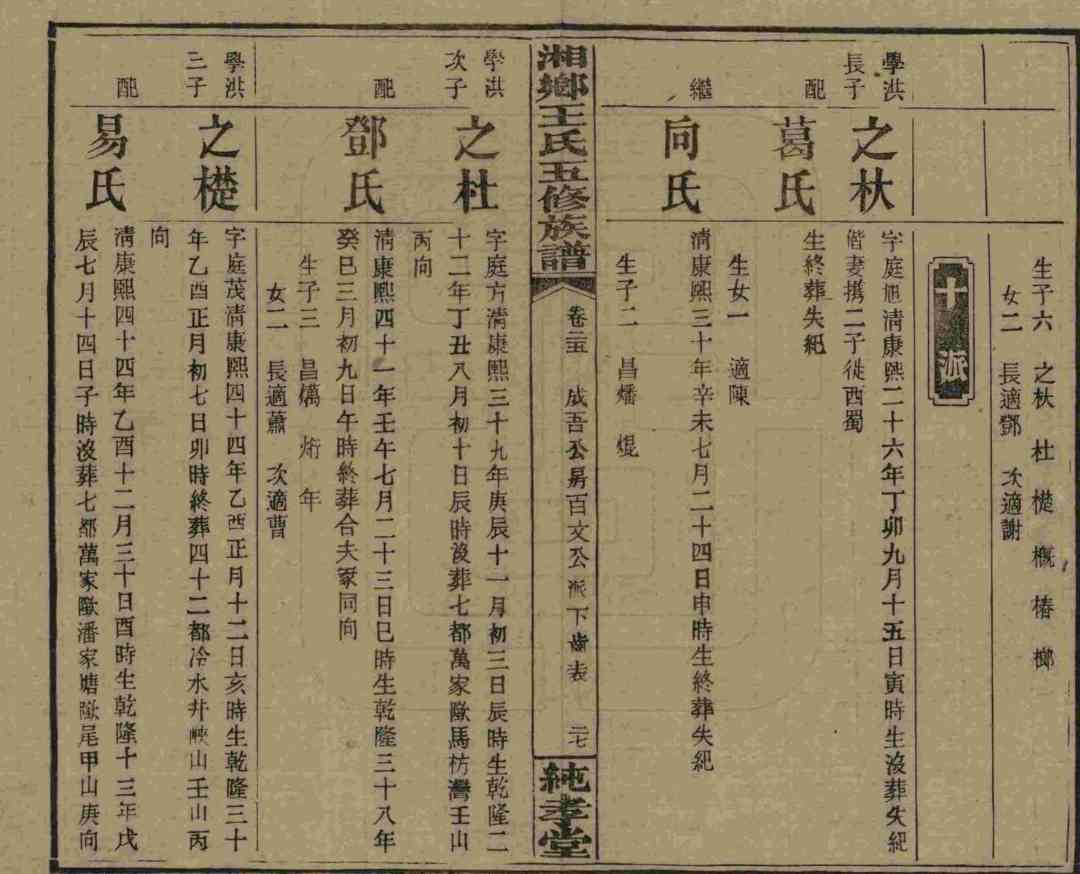 生子六 之杕 杜 檚 概 椿 榔
女二 長適鄧 次適謝
十 派
學洪
長子
之杕
字庭旭清康熙二十六年丁卯九月十五日寅時生沒葬失紀
偕妻攜二子徙西蜀
配
葛氏
生終葬失紀
生女一 適陳
繼
向氏
清康熙三十年辛未七月二十四日申時生終葬失紀
生子二 昌燔 焜
湘鄉王氏五修族譜
卷三五
成吾公房百文公派下齒表
二七
純孝堂
學洪
次子
之杜
字庭方清康熙三十九年庚辰十一月初三日辰時生乾隆二
十二年丁丑八月初十日辰時沒葬七都萬家隞馬枋灣壬山
丙向
配
鄧氏
清康熙四十一年壬午七月二十三日巳時生乾隆三十八年
癸巳三月初九日午時終葬合夫冢同向
生子三 昌爄 炘 年
女二 長適蕭 次適曹
學洪
三子
之檚
字庭茂清康熙四十四年乙酉正月十二日亥時生乾隆三十
年乙酉正月初七日卯時終葬四十二都冷水井峽山壬山丙
向
配
易氏
清康熙四十四年乙酉十二月三十日酉時生乾隆十三年戊
辰七月十四日子時沒葬七都萬家隞潘家塘隞尾甲山庚向